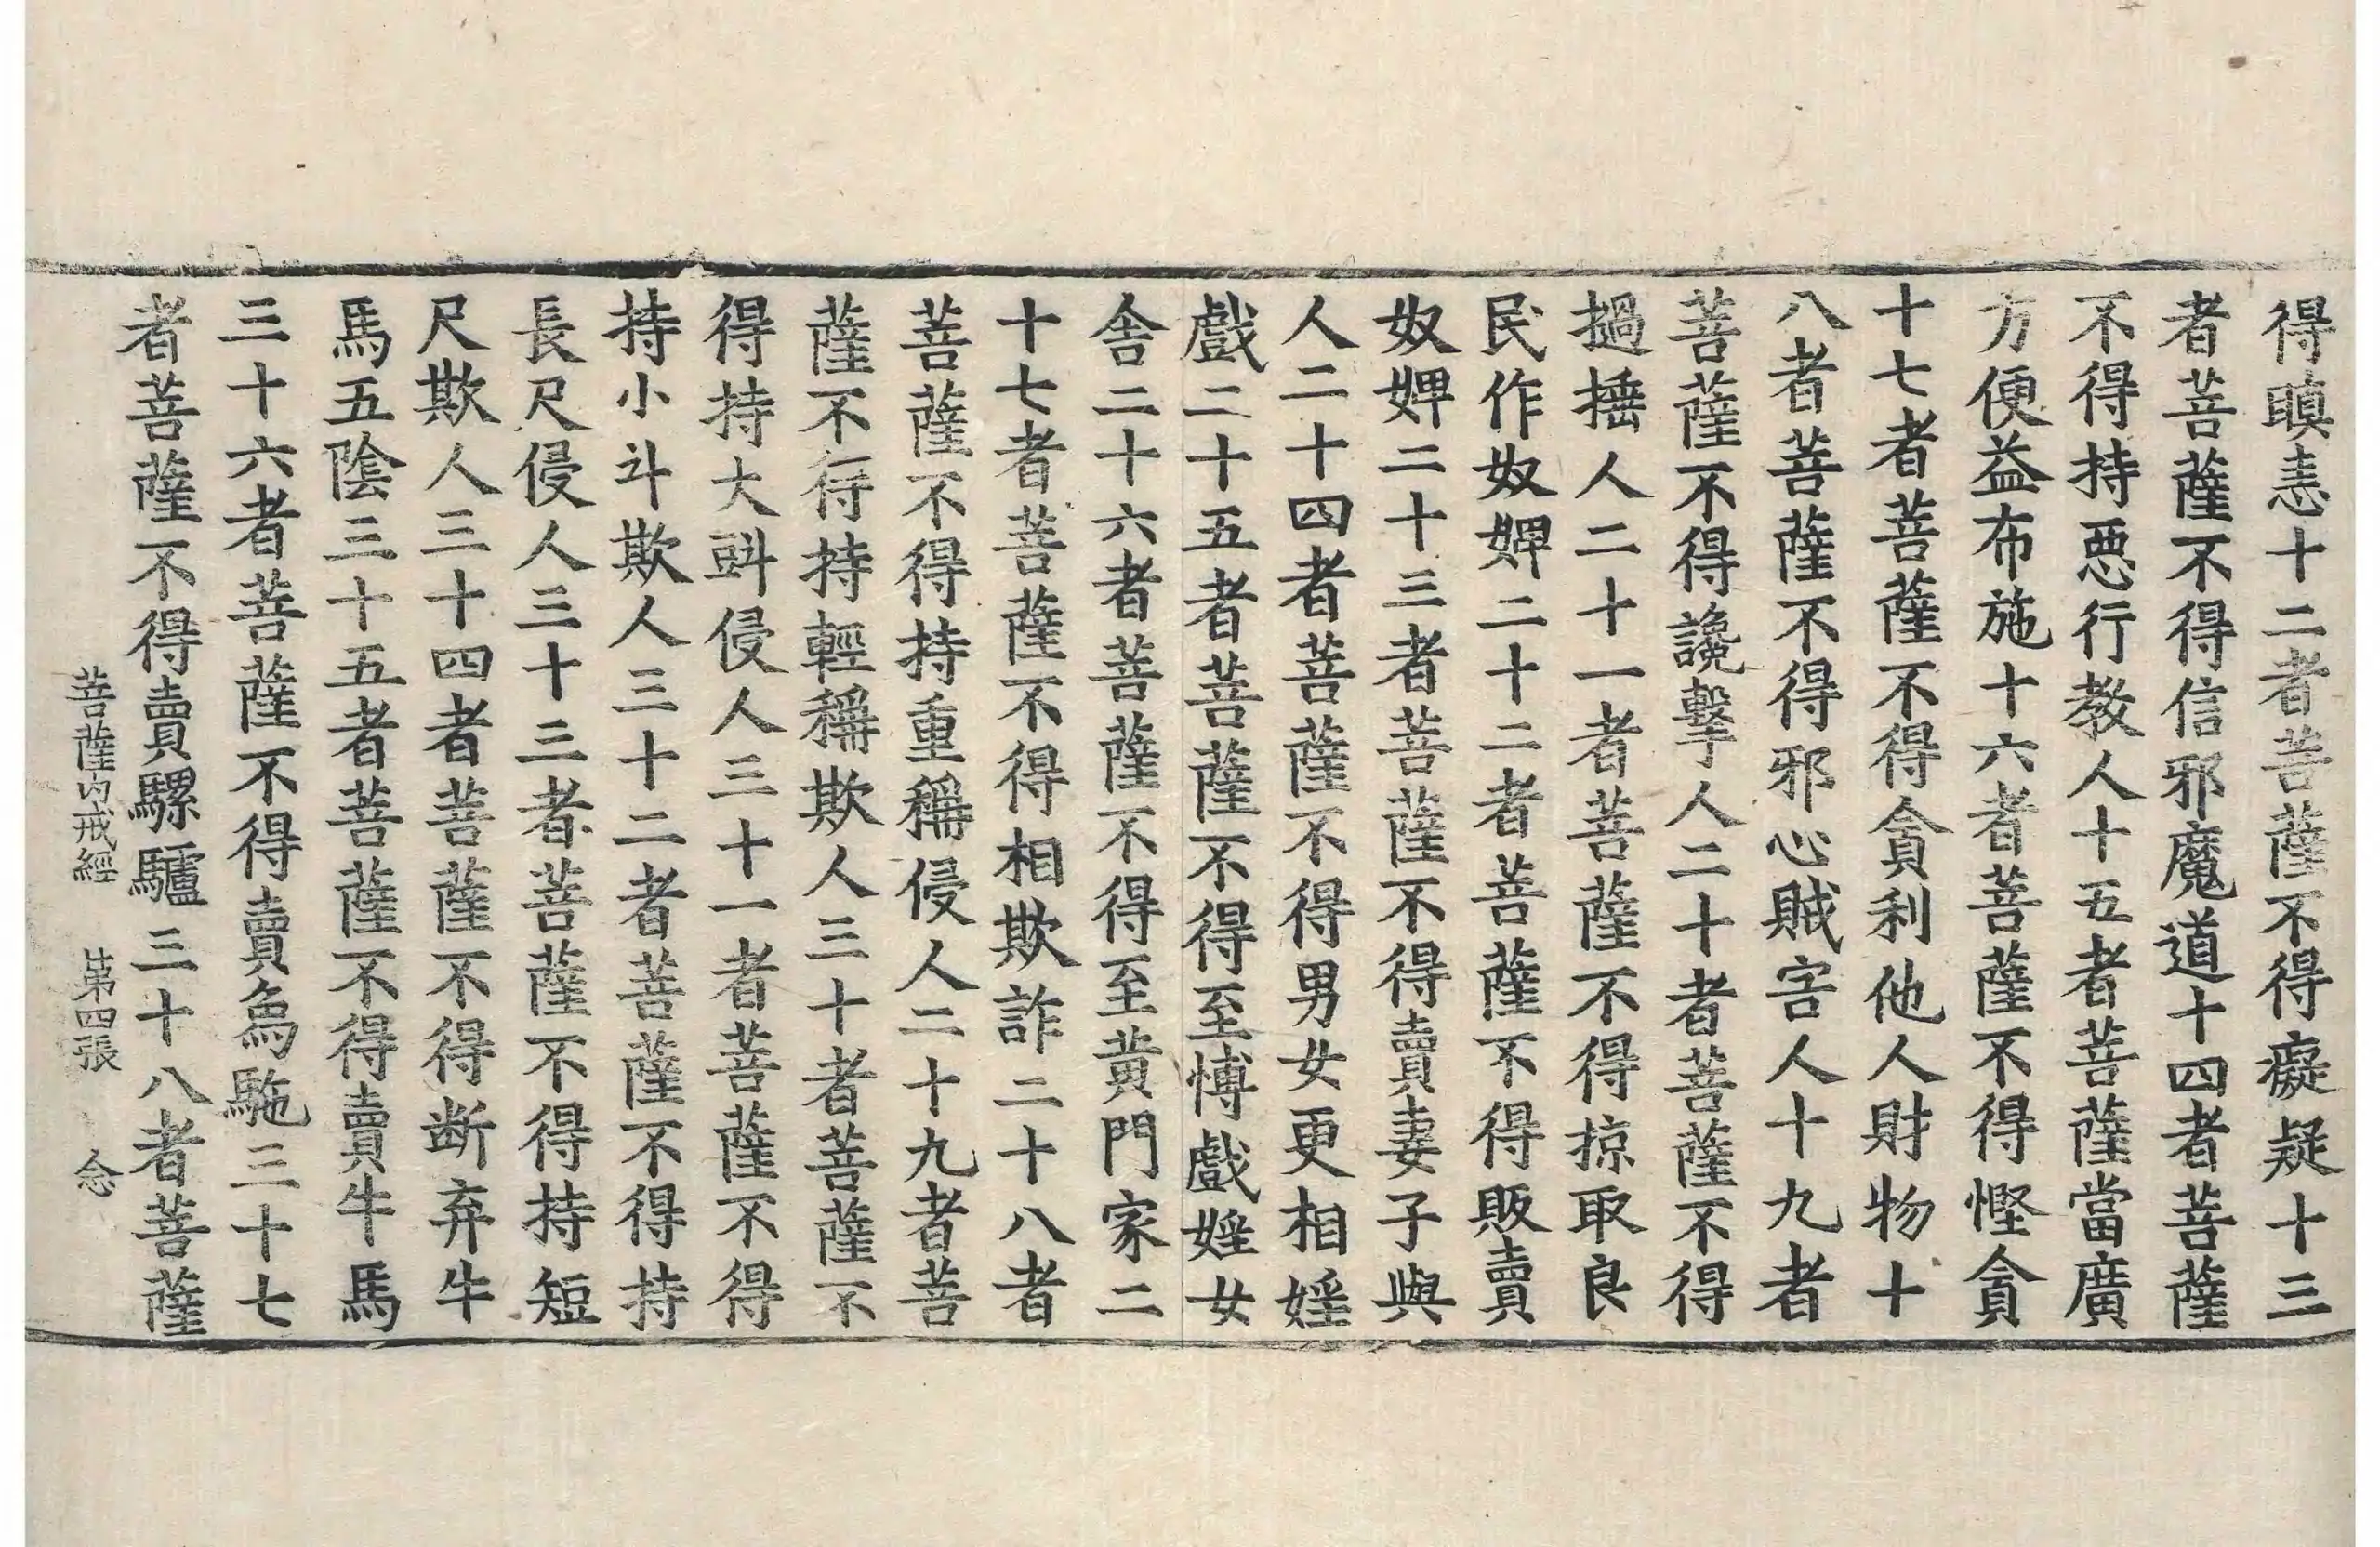 得瞋恚十二者菩薩不得癡疑十三
者菩薩不得信邪魔道十四者菩薩
不得持惡行教人十五者菩薩當廣
方便益布施十六者菩薩不得慳貪
十七者菩薩不得貪利他人財物十
八者菩薩不得邪心賊害人十九者
菩薩不得讒擊人二十者菩薩不得
撾捶人二十一者菩薩不得掠取良
民作奴婢二十二者菩薩不得販賣
奴婢二十三者菩薩不得賣妻子與
人二十四者菩薩不得男女更相婬
戲二十五者菩薩不得至愽戲婬女
舍二十六者菩薩不得至黄門家二
十七者菩薩不得相欺詐二十八者
菩薩不得持重稱侵人二十九者菩
薩不得持輕稱欺人三十者菩薩不
得持大㪷侵人三十一者菩薩不得
持小斗欺人三十二者菩薩不得持
長尺侵人三十三者菩薩不得持短
尺欺人三十四者菩薩不得断弃牛
馬五陰三十五者菩薩不得賣牛馬
三十六者菩薩不得賣𤉢駞三十七
者菩薩不得賣騾驢三十八者菩薩
菩薩内戒經 第四張 念